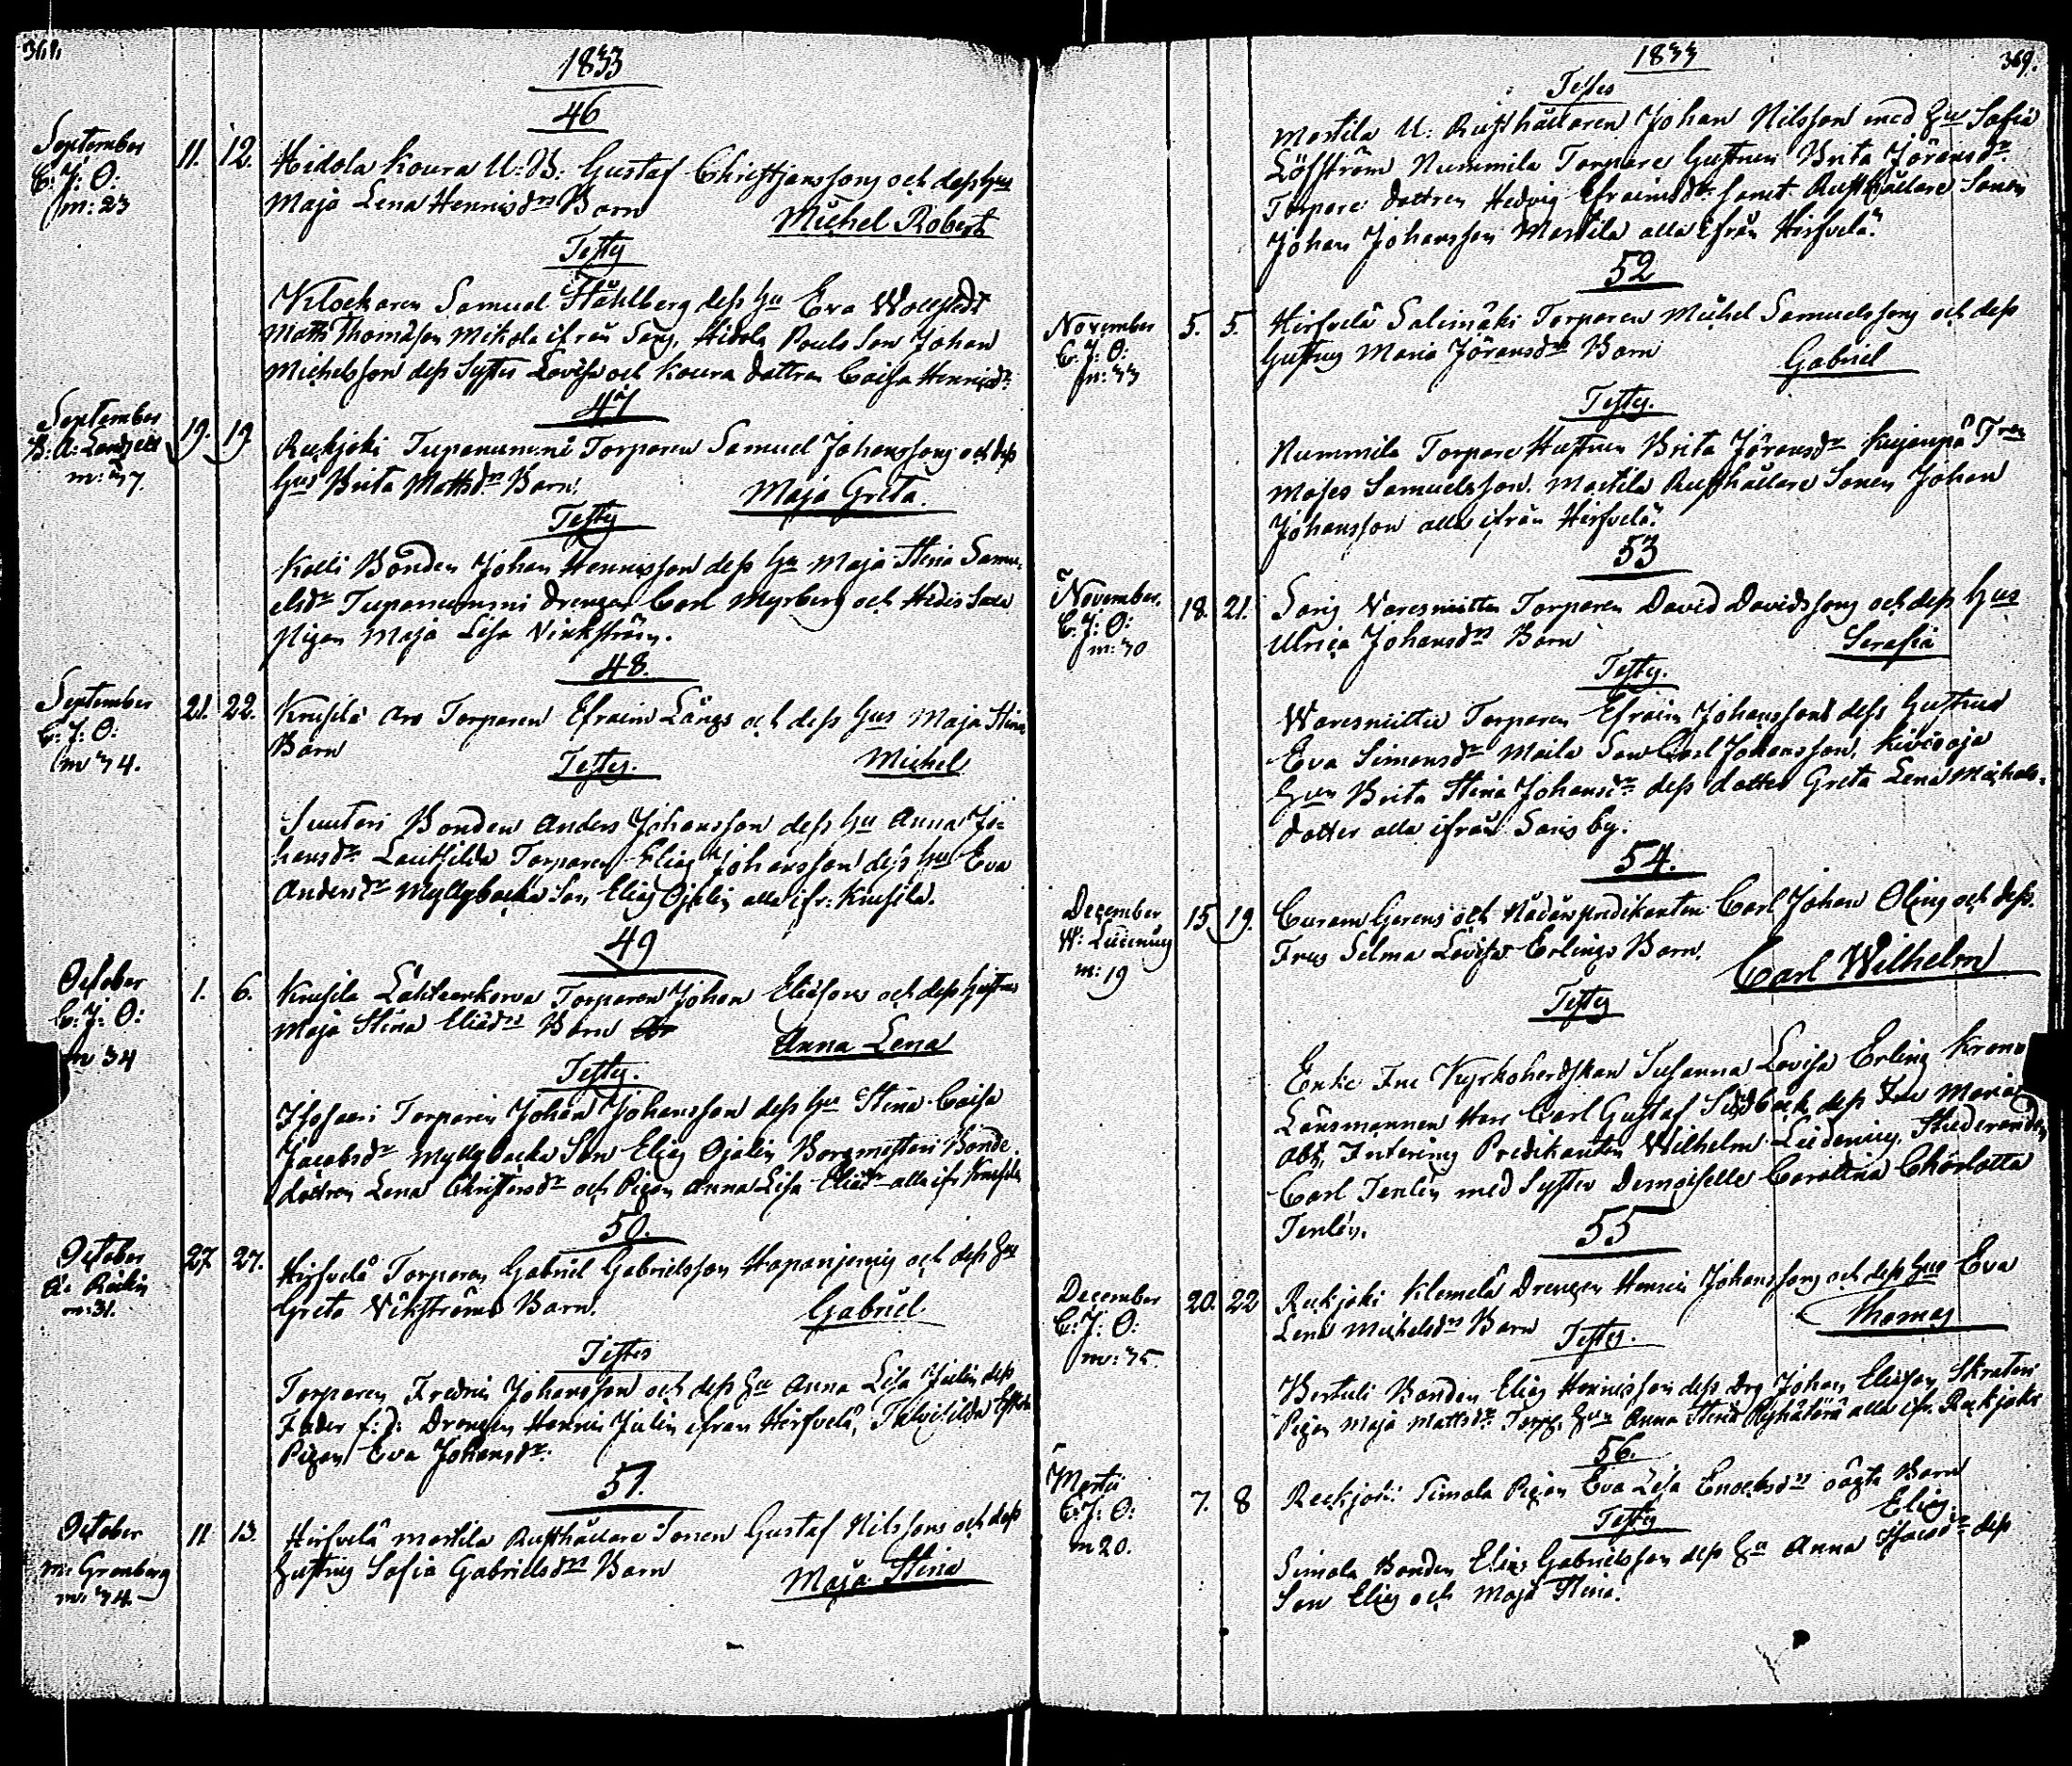 368.
1833
46
September
C: J: O:
m: 23
11. 12.
Hidola Koura U: B: Gustaf Christjanssons och dess hus
Maja Lena Henrisdrs Barn
Michel Robert
Testes
Klockaren Samuel Ståhlberg dess hu Eva Wallstedt
Matts Thomasson Mikola ifrån Saris, Hidola Pouls Son Johan
Michelsson dess Syster Lovisa och Koura dottren Caisa Henrisdr
47
September
B: A: Landzell
m: 37.
19. 19
Reekjoki Tupanummi Torparen Samuel Johanssons och dess
hus Brita Mattsdrs Barn
Maja Greta.
Testes
Kalli Bonden Johan Henrisson dess hu Maja Stina Samu-
elsdr Tupanummi drengen Carl Myrberg och Hidis
Pigan Maja Lisa Vinkström.
48.
September
C: J: O:
m 34.
21. 22.
Krusila Aro Torparen Efraim Långs och dess hus Maja Stinas
Barn
Testes.
Michel
Suutari Bonden Anders Johansson dess hu Anna Jo-
hansdr Lautsilda Torparen Elias Johansson dess hu Eva
Andersdr Myllybacka Son Elias Ojelin alla ifr: Krusila.
49
October
C: J: O:
m 34
1. 6.
Krusila Torparen Johan Eliassons och dess hustrus
Maja Stina Eliædrs Barn
Anna Lena
Testes.
Isosaari Torparen Johan Johansson dess hu Stina Caisa
Jacobsdr Myllybacka Son Elias Ojalin Borgmestari Bonde
dottren Lena Christersdr och Pigan Anna Lisa Eliædr alla ifr Krusila
50.
October
m: 31.
27 27.
Hirsvelä Torparen Gabriel Gabrielsson Hapaniemis och dess hus
Greta Vikströms Barn.
Gabriel
Testes
Torparen Fredric Johansson och dess hu Anna Lisa Julin dess
Fader f: d: Drengen Henric Julin ifran Hirsvelä,
Pigan Eva Johansdr.
51.
October
m: Grönberg
m: 34.
11 13.
Hirsvelä Martila Rusthållare Sonen Gustaf Nilssons och dess
hustrus Sofia Gabrielsdrs Barn
Maja Stina
1833
369.
Testes
Martila U: Rusthållaren Johan Nilsson med hu Sofia
Löfström Nummila Torpare hustrun Brita Jöransdr
Torpare dottren Hedvig Efraimsdr samt Rusthållare Sonen
Johan Johansson Martila alla ifrån Hirsvelä.
52
November
C: J: O:
m: 33
5. 5.
Hirsvelä Salimäki Torparen Michel Samuelssons och dess
hustrus Maria Jöransdrs Barn
Gabriel
Testes.
Nummila Torpare Hustrun Brita Jöransdr
Moses Samuelsson. Martila Rusthållare Sonen Johan
Johansson alla ifrån Hirsvelä.
53
November.
C: J: O:
m: 30
18. 21.
Saris Varesniittu Torparen David Davidssons och dess hus
Ulrica Johansdrs Barn
Serafia
Testes.
Waresniittu Torparen Efraim Johansson dess hustru
Eva Simonsdr Maila Son Carl Johansson, Kivioja
hun Brita Stina Johansdr dess dotter Greta Lena Michels-
dotter alla ifrån Saris by.
54.
December
m: 19
15 19.
Curam Gerens och Nådårspredikanten Carl Johan Olins och dess
Frus Selma Lovisa Erlings Barn.
Carl Wilhelm
Testes
Enke Fru Kyrkoherdskan Susanna Lovisa Erling Krono
Länsmannen Herr Carl Gustaf dess Fru Maria
Predikanten Wilhelm Studeranden
Carl Tenlén med Syster Demoiselle Carolina Charlotta
Tenlén.
55
December
C: J: O:
m: 35.
20. 22
Reekjoki Klemelä Drengen Henric Johanssons och dess hus Eva
Lena Michelsdrs Barn
Thomas
Testes.
Bertuli Bonden Elias Henrisson dess drg Johan Eliasson
Pigan Maja Mattsdr Torp. hun Anna Stina alla ifr. Reekjoki
56.
Martii
C: J: O:
m 20.
7. 8
Reekjoki Simola Pigan Eva Lisa Enochsdrs oägta Barn
Elias.
Testes
Simola Bonden Elias Gabrielsson dess hu Anna Isacsdr dess
Son Elias och Maja Stina.